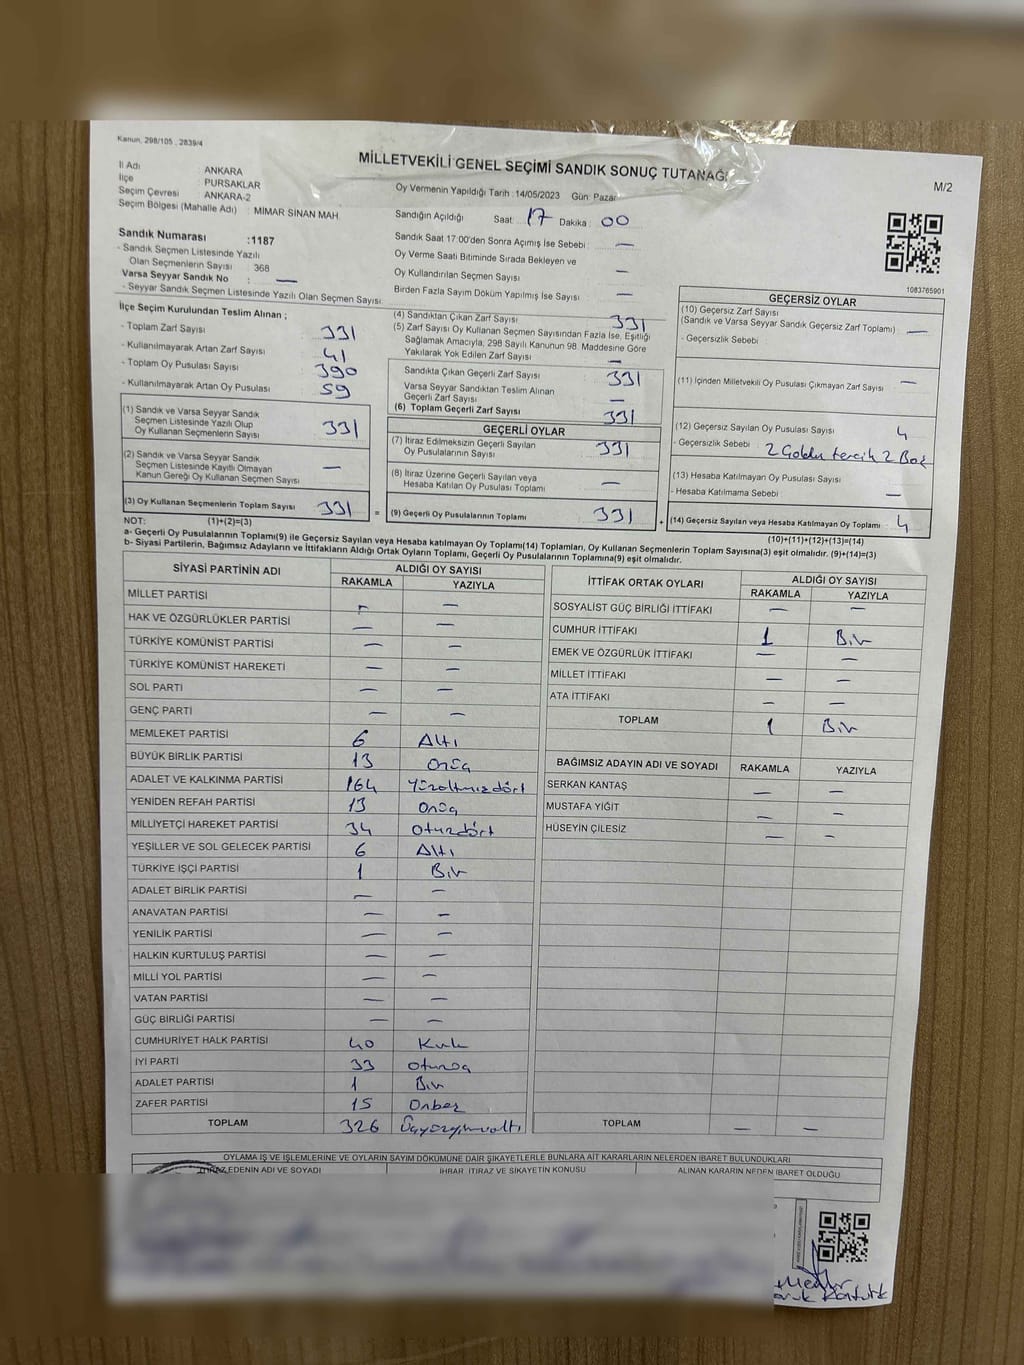 Kanun, 298/105 , 2839/4
MİLLETVEKİLİ GENEL SEÇİMİ SANDIK SONUÇ TUTANAĞI
M/2
İl Adı : ANKARA
İlçe : PURSAKLAR
Seçim Çevresi : ANKARA-2
Seçim Bölgesi (Mahalle Adı) : MİMAR SİNAN MAH
Oy Vermenin Yapıldığı Tarih : 14/05/2023 Gün: Pazar
Sandığın Açıldığı Saat : 17 Dakika : 00
Sandık Saat 17:00'den Sonra Açımış İse Sebebi : —
Oy Verme Saati Bitiminde Sırada Bekleyen ve
Oy Kullandırılan Seçmen Sayısı : —
Birden Fazla Sayım Döküm Yapılmış İse Sayısı : —
Sandık Numarası :1187
- Sandık Seçmen Listesinde Yazılı
Olan Seçmenlerin Sayısı : 368
Varsa Seyyar Sandık No : —
- Seyyar Sandık Seçmen Listesinde Yazılı Olan Seçmen Sayısı:
1083765901
İlçe Seçim Kurulundan Teslim Alınan ;
- Toplam Zarf Sayısı : 331
- Kullanılmayarak Artan Zarf Sayısı : 41
- Toplam Oy Pusulası Sayısı : 390
- Kullanılmayarak Artan Oy Pusulası : 59
(1) Sandık ve Varsa Seyyar Sandık
Seçmen Listesinde Yazılı Olup
Oy Kullanan Seçmenlerin Sayısı : 331
(2) Sandık ve Varsa Seyyar Sandık
Seçmen Listesinde Kayıtlı Olmayan
Kanun Gereği Oy Kullanan Seçmen Sayısı : —
(3) Oy Kullanan Seçmenlerin Toplam Sayısı : 331
(1)+(2)=(3)
(4) Sandıktan Çıkan Zarf Sayısı : 331
(5) Zarf Sayısı Oy Kullanan Seçmen Sayısından Fazla İse, Eşitliği
Sağlamak Amacıyla, 298 Sayılı Kanunun 98. Maddesine Göre
Yakılarak Yok Edilen Zarf Sayısı : —
Sandıkta Çıkan Geçerli Zarf Sayısı : 331
Varsa Seyyar Sandıktan Teslim Alınan
Geçerli Zarf Sayısı : —
(6) Toplam Geçerli Zarf Sayısı : 331
GEÇERLİ OYLAR
(7) İtiraz Edilmeksizin Geçerli Sayılan
Oy Pusulalarının Sayısı : 331
(8) İtiraz Üzerine Geçerli Sayılan veya
Hesaba Katılan Oy Pusulası Toplamı : —
= (9) Geçerli Oy Pusulalarının Toplamı : 331
GEÇERSİZ OYLAR
(10) Geçersiz Zarf Sayısı
(Sandık ve Varsa Seyyar Sandık Geçersiz Zarf Toplamı) : —
- Geçersizlik Sebebi :
(11) İçinden Milletvekili Oy Pusulası Çıkmayan Zarf Sayısı : —
(12) Geçersiz Sayılan Oy Pusulası Sayısı : 4
- Geçersizlik Sebebi : 2 Çoklu tercih 2 Boş
(13) Hesaba Katılmayan Oy Pusulası Sayısı :
- Hesaba Katılmama Sebebi : —
+ (14) Geçersiz Sayılan veya Hesaba Katılmayan Oy Toplamı : 4
(10)+(11)+(12)+(13)=(14)
NOT:
a- Geçerli Oy Pusulalarının Toplamı(9) ile Geçersiz Sayılan veya Hesaba katılmayan Oy Toplamı(14) Toplamları, Oy Kullanan Seçmenlerin Toplam Sayısına(3) eşit olmalıdır. (9)+(14)=(3)
b- Siyasi Partilerin, Bağımsız Adayların ve İttifakların Aldığı Ortak Oyların Toplamı, Geçerli Oy Pusulalarının Toplamına(9) eşit olmalıdır.
SİYASİ PARTİNİN ADI ALDIĞI OY SAYISI
RAKAMLA YAZIYLA
MİLLET PARTİSİ — —
HAK VE ÖZGÜRLÜKLER PARTİSİ — —
TÜRKİYE KOMÜNİST PARTİSİ — —
TÜRKİYE KOMÜNİST HAREKETİ — —
SOL PARTİ — —
GENÇ PARTİ — —
MEMLEKET PARTİSİ 6 Altı
BÜYÜK BİRLİK PARTİSİ 13 Onüç
ADALET VE KALKINMA PARTİSİ 164 Yüzaltmışdört
YENİDEN REFAH PARTİSİ 13 Onüç
MİLLİYETÇİ HAREKET PARTİSİ 34 Otuzdört
YEŞİLLER VE SOL GELECEK PARTİSİ 6 Altı
TÜRKİYE İŞÇİ PARTİSİ 1 Bir
ADALET BİRLİK PARTİSİ — —
ANAVATAN PARTİSİ — —
YENİLİK PARTİSİ — —
HALKIN KURTULUŞ PARTİSİ — —
MİLLİ YOL PARTİSİ — —
VATAN PARTİSİ — —
GÜÇ BİRLİĞİ PARTİSİ — —
CUMHURİYET HALK PARTİSİ 40 Kırk
İYİ PARTİ 33 Otuzüç
ADALET PARTİSİ 1 Bir
ZAFER PARTİSİ 15 Onbeş
TOPLAM 326 Üçyüzyirmialtı
İTTİFAK ORTAK OYLARI ALDIĞI OY SAYISI
RAKAMLA YAZIYLA
SOSYALİST GÜÇ BİRLİĞİ İTTİFAKI — —
CUMHUR İTTİFAKI 1 Bir
EMEK VE ÖZGÜRLÜK İTTİFAKI — —
MİLLET İTTİFAKI — —
ATA İTTİFAKI — —
TOPLAM 1 Bir
BAĞIMSIZ ADAYIN ADI VE SOYADI RAKAMLA YAZIYLA
SERKAN KANTAŞ — —
MUSTAFA YİĞİT — —
HÜSEYİN ÇİLESİZ — —
TOPLAM — —
OYLAMA İŞ VE İŞLEMLERİNE VE OYLARIN SAYIM DÖKÜMÜNE DAİR ŞİKAYETLERLE BUNLARA AİT KARARLARIN NELERDEN İBARET BULUNDUKLARI
İTİRAZ EDENİN ADI VE SOYADI İHBAR, İTİRAZ VE ŞİKAYETİN KONUSU ALINAN KARARIN NEDEN İBARET OLDUĞU